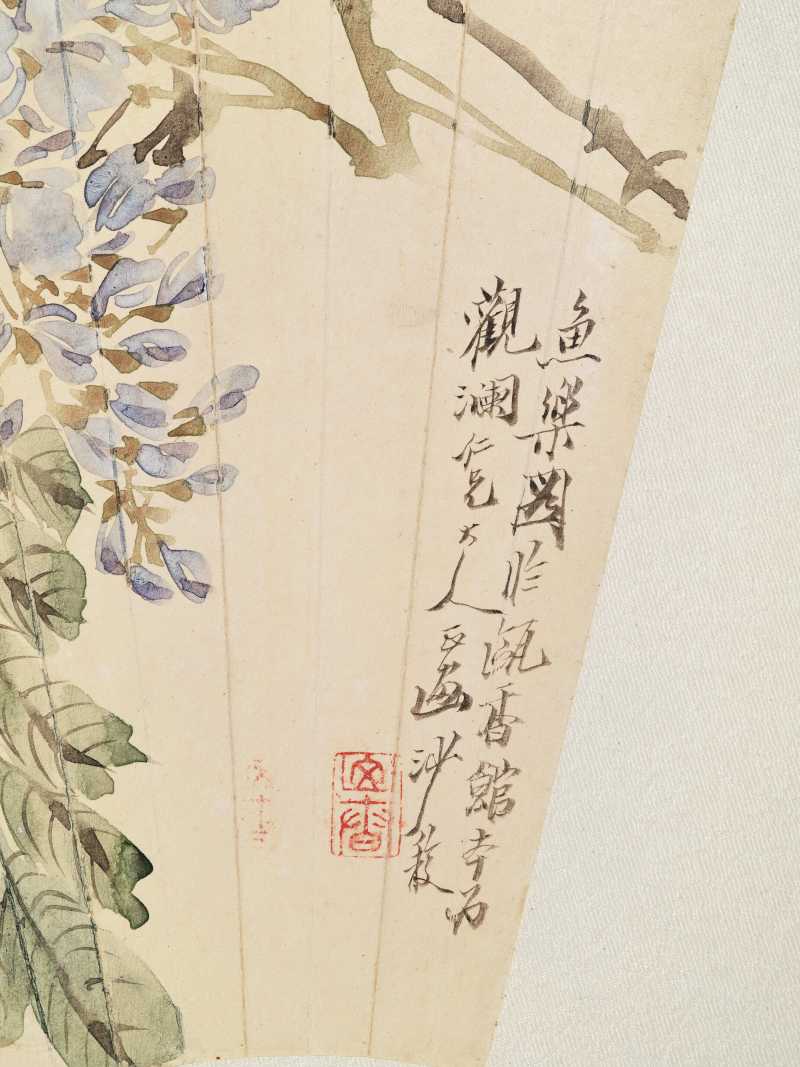 魚樂圖临甌香館本为
觀瀾仁兄大人正画沙馥